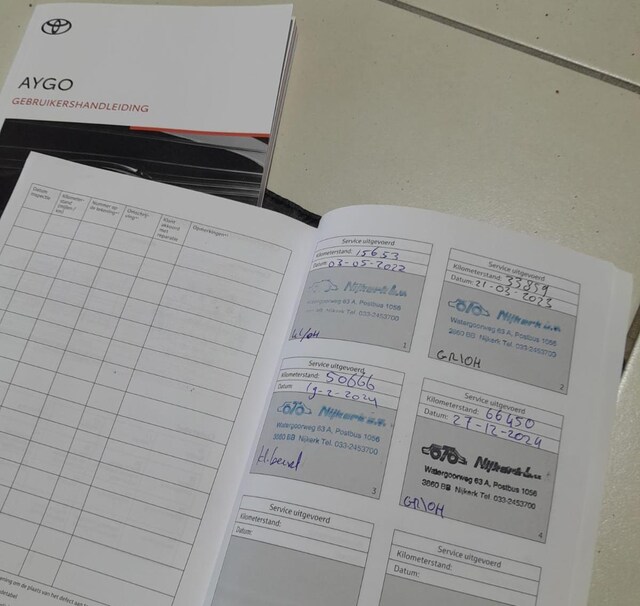 AYGO
GEBRUIKERSHANDLEIDING
Datum
Kilometer-
stand
Nummer op
Klant
akkoord
met
reparatie
Opmerkingen**
Service uitgevoerd
Kilometerstand: 15653
Datum: 03-05-2022
Nijkerk b.v.
Watergoorweg 63 A, Postbus 1056
3860 BB Nijkerk Tel. 033-2453700
1
Service uitgevoerd
Kilometerstand: 33859
Datum: 21-03-2023
Nijkerk b.v.
Watergoorweg 63 A, Postbus 1056
3860 BB Nijkerk Tel. 033-2453700
GR/OH
2
Service uitgevoerd
Kilometerstand: 50666
Datum: 19-2-2024
Nijkerk b.v.
Watergoorweg 63 A, Postbus 1056
3860 BB Nijkerk Tel. 033-2453700
3
Service uitgevoerd
Kilometerstand: 66450
Datum: 27-12-2024
Nijkerk b.v.
Watergoorweg 63 A, Postbus 1056
3860 BB Nijkerk Tel. 033-2453700
GR/OH
4
Service uitgevoerd
Kilometerstand:
Datum:
Service uitgevoerd
Kilometerstand:
Datum: